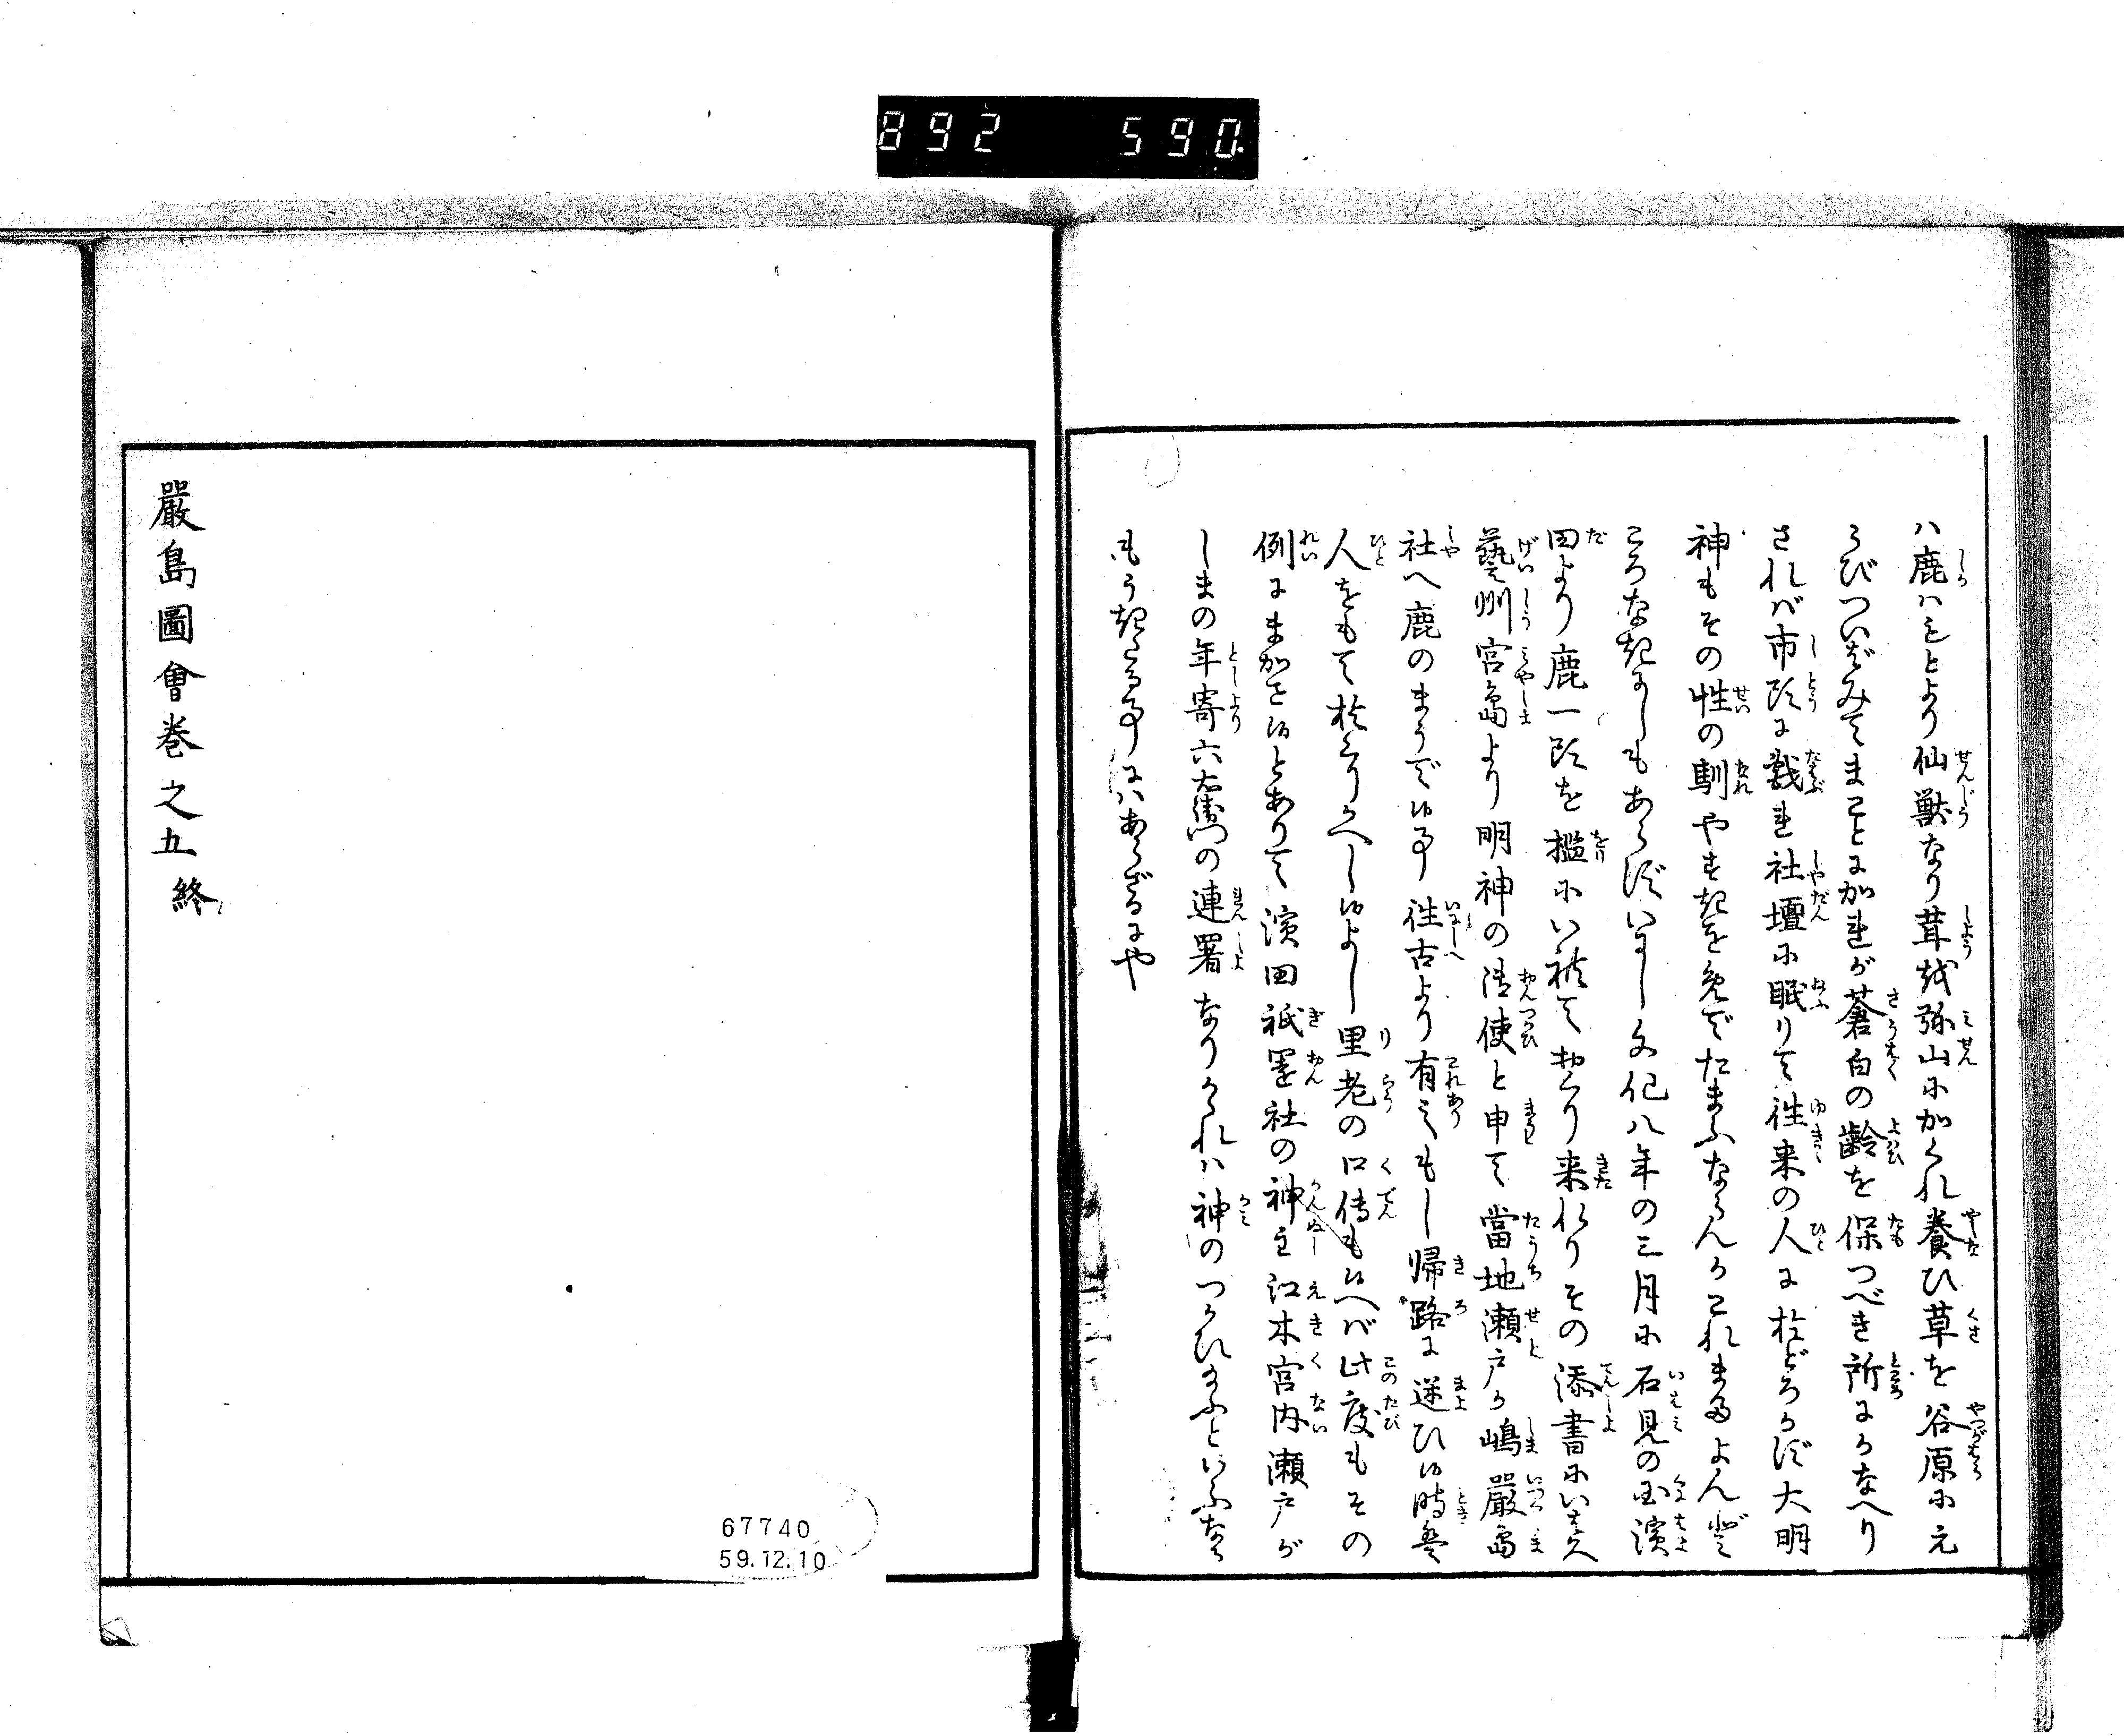 892 590
ハ鹿ハもとより仙獣なり茸を弥山にかくれ養ひ草を谷原に元
らびついばみてまことにかれが蒼白の齢を保つべき所にかなへり
されバ市頭に戯れ社壇に眠りて往来の人におどろかず大明
神もその性の馴やすきを免でたまふならんかこれまたよんど
ころなきにしもあらずいにし文化八年の三月に石見の国濱
田より鹿一頭を檻にいれておくり来れりその添書にいはく
藝州宮島より明神の御使と申て當地瀬戸か嶋嚴島
社へ鹿のまうで候事往古より有之もし帰路に迷ひ候時は
人をもておくりかへし候よし里老の口傳も候へバ此度もその
例にまかせ候とありて濱田祇園社の神主江木宮内瀬戸が
しまの年寄六右衛門の連署なりされハ神のつかひ給ふといふなる
もうきたる事にハあらざるにや
嚴島圖會巻之五終
67740
59.12.10